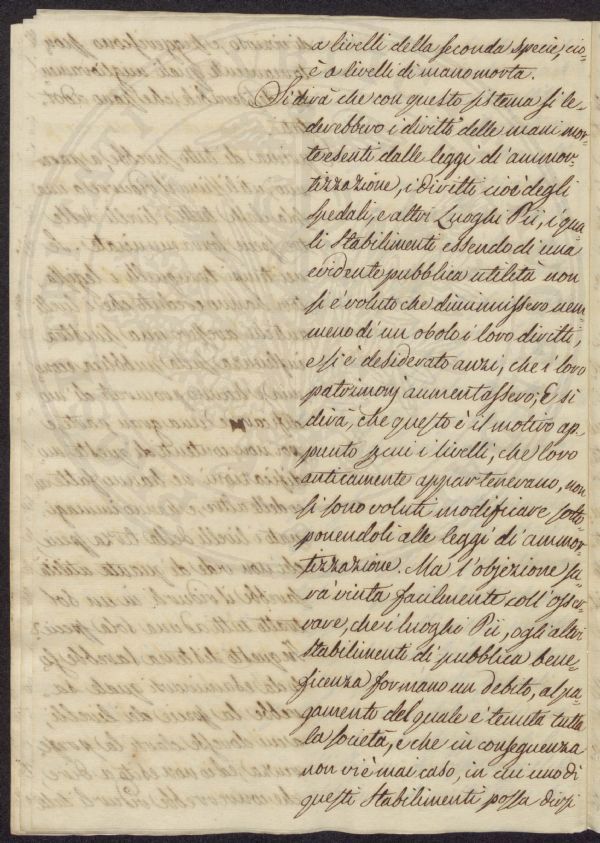 a livelli della seconda specie, cio-
è a livelli di manomorta.
Si dirà che con questo sistema si le-
derebbero i diritti delle mani mor-
te esenti dalle leggi di ammor-
tizzazione, i diritti cioè degli
spedali, e altri Luoghi Pii, i qua-
li Stabilimenti essendo di una
evidente pubblica utiletà non
si è voluto che diminuissero nem-
meno di un obolo i loro diritti,
e si è desiderato anzi, che i loro
patrimonj aumentassero; E si
dirà, che questo è il motivo ap-
punto per cui i livelli, che loro
anticamente appartenevano, non
si sono voluti modificare sotto-
ponendoli alle leggi di ammor-
tizzazione. Ma l'objezione sa-
rà vinta facilmente coll'osser-
vare, che i luoghi Pii, o gli altri
stabilimenti di pubblica bene-
ficenza formano un debito, al pa-
gamento del quale è tenuta tutta
la società, e che in conseguenza
non vi è mai caso, in cui uno di
questi Stabilimenti possa dirsi